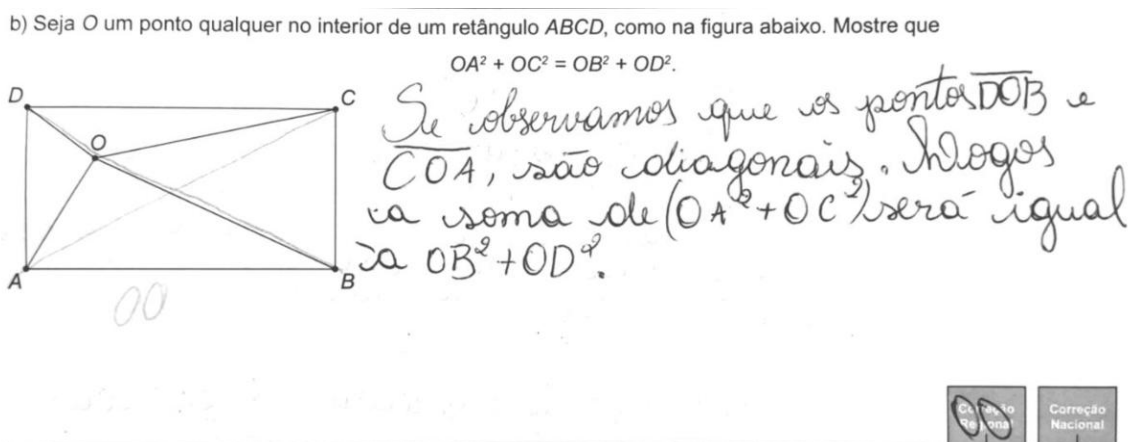 b) Seja O um ponto qualquer no interior de um retângulo ABCD, como na figura abaixo. Mostre que
OA² + OC² = OB² + OD².
D
C
O
A
B
Se observamos que os pontos DOB e
COA, são diagonais. Logos
a soma de (OA² + OC²) será igual
a OB² + OD².
00
00
Correção
Regional
Correção
Nacional